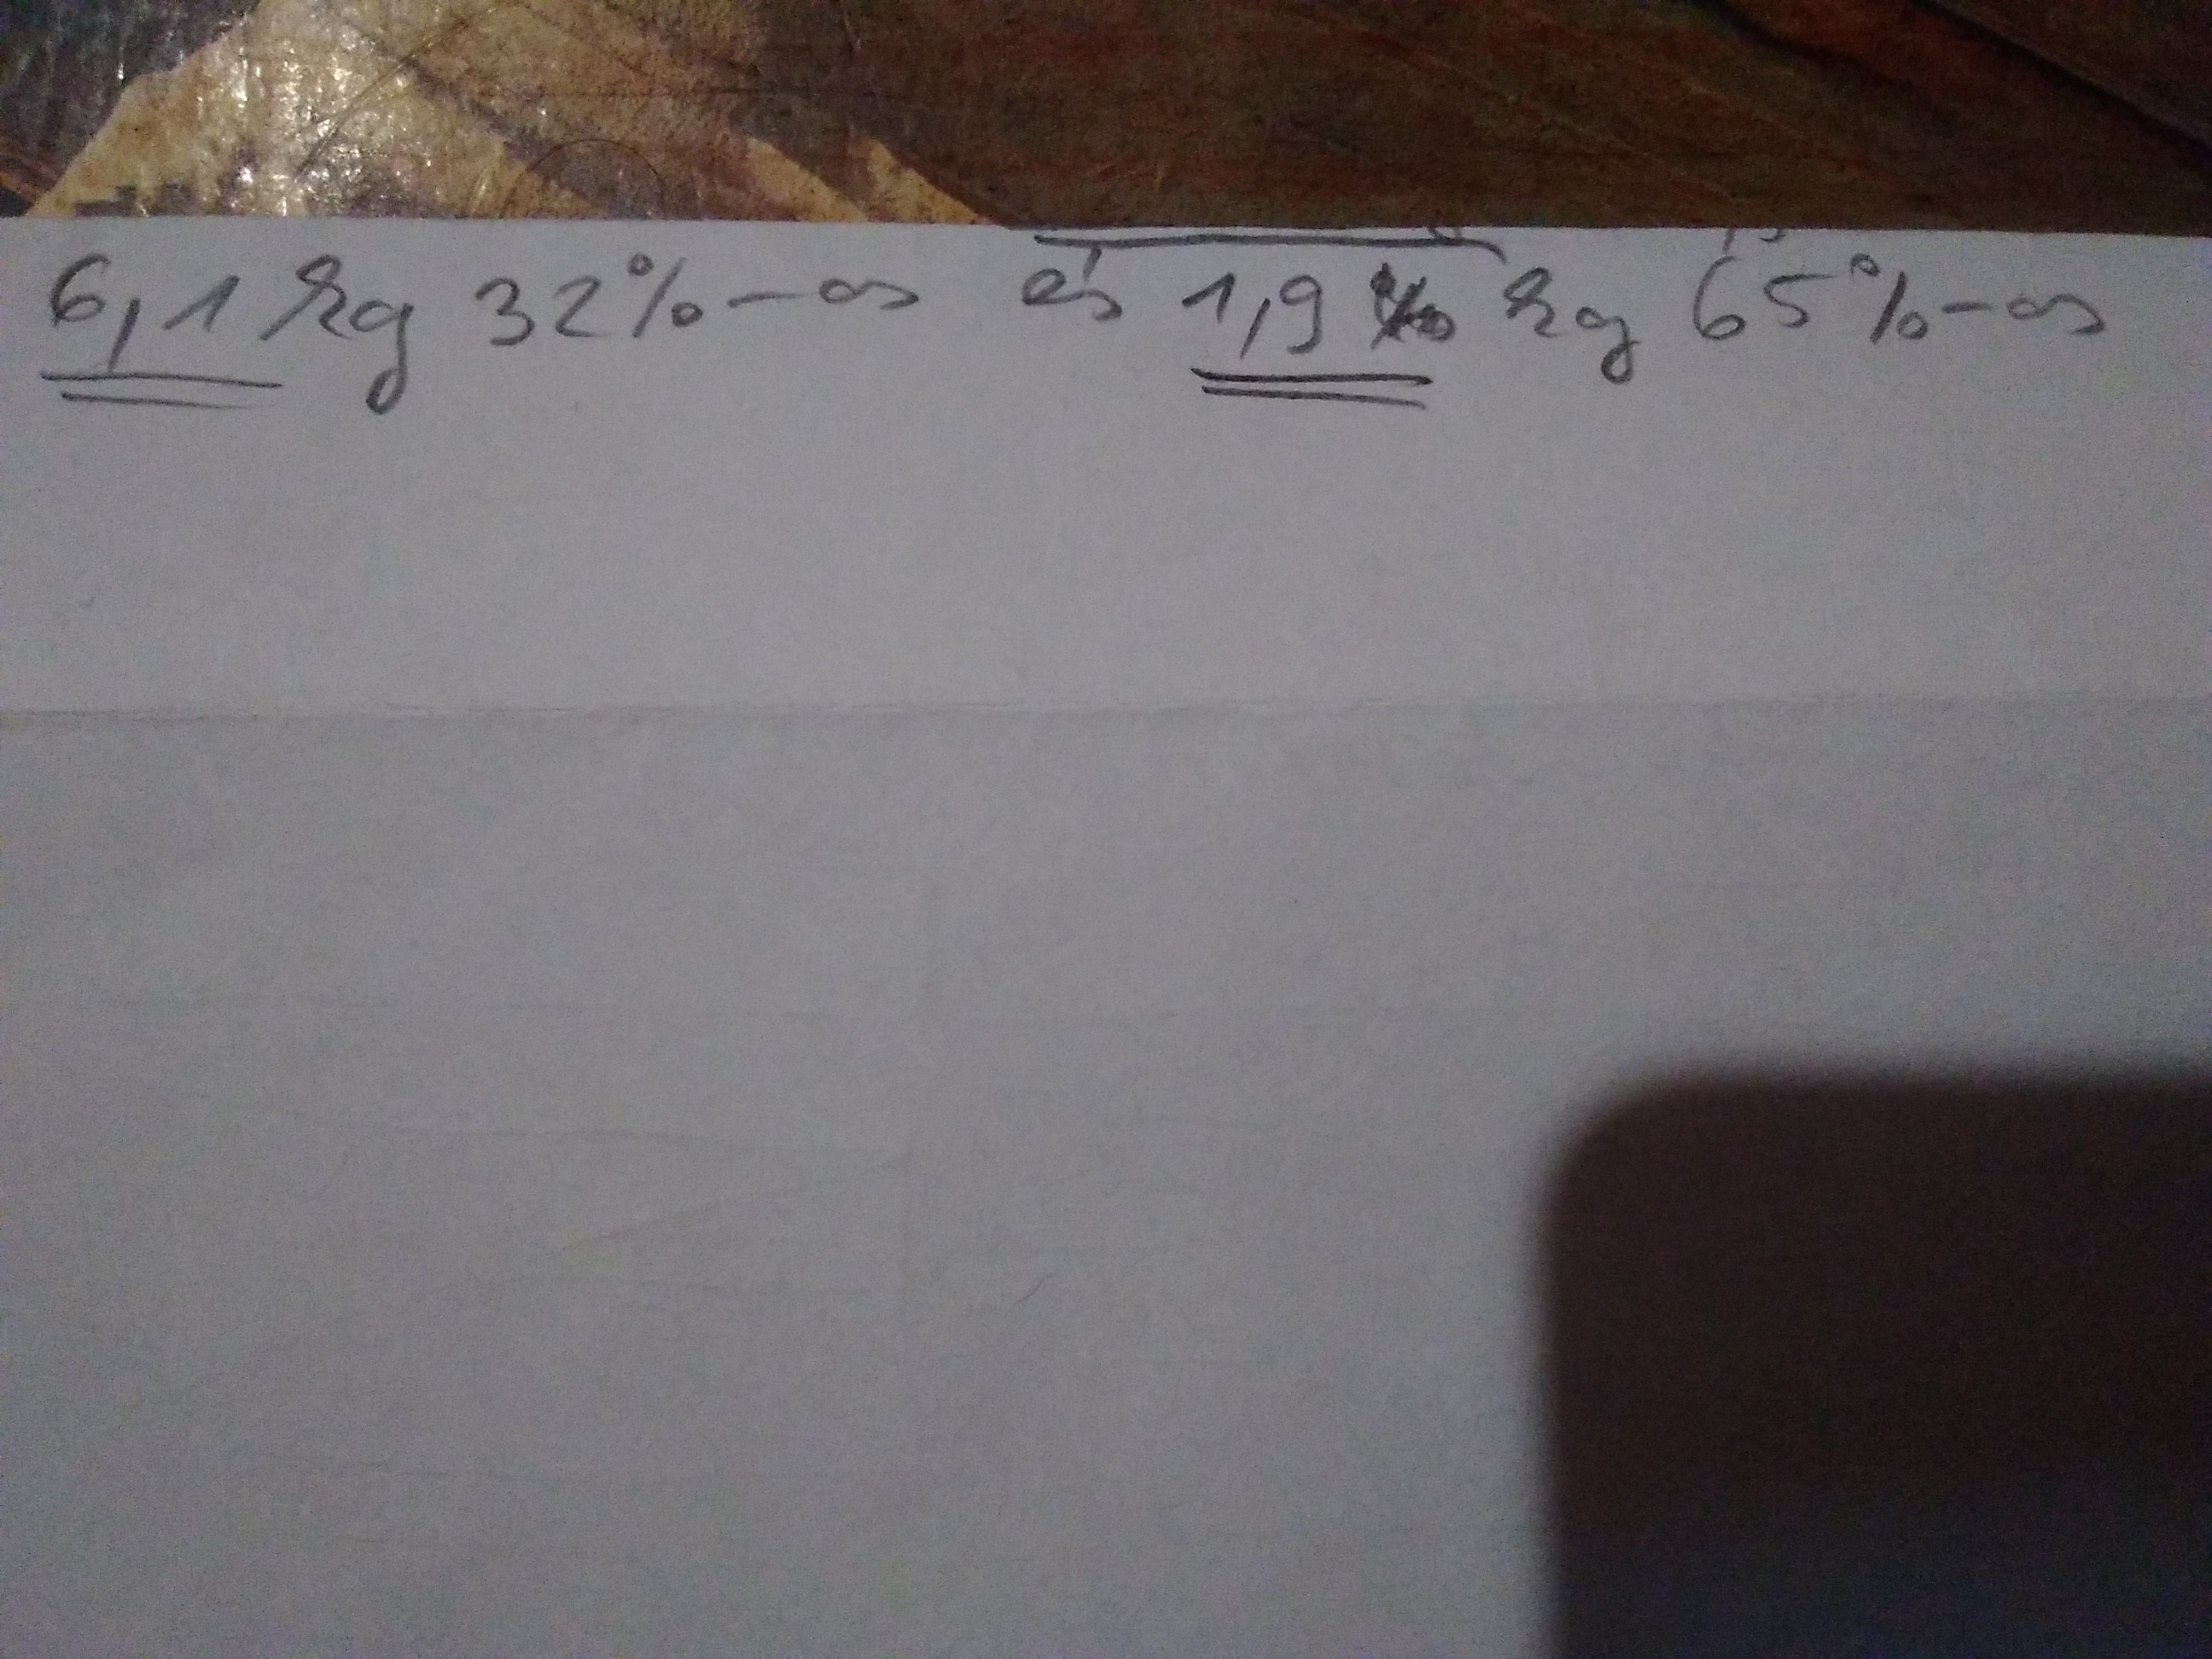 6,1 kg 32%-os és 1,9 kg 65%-os